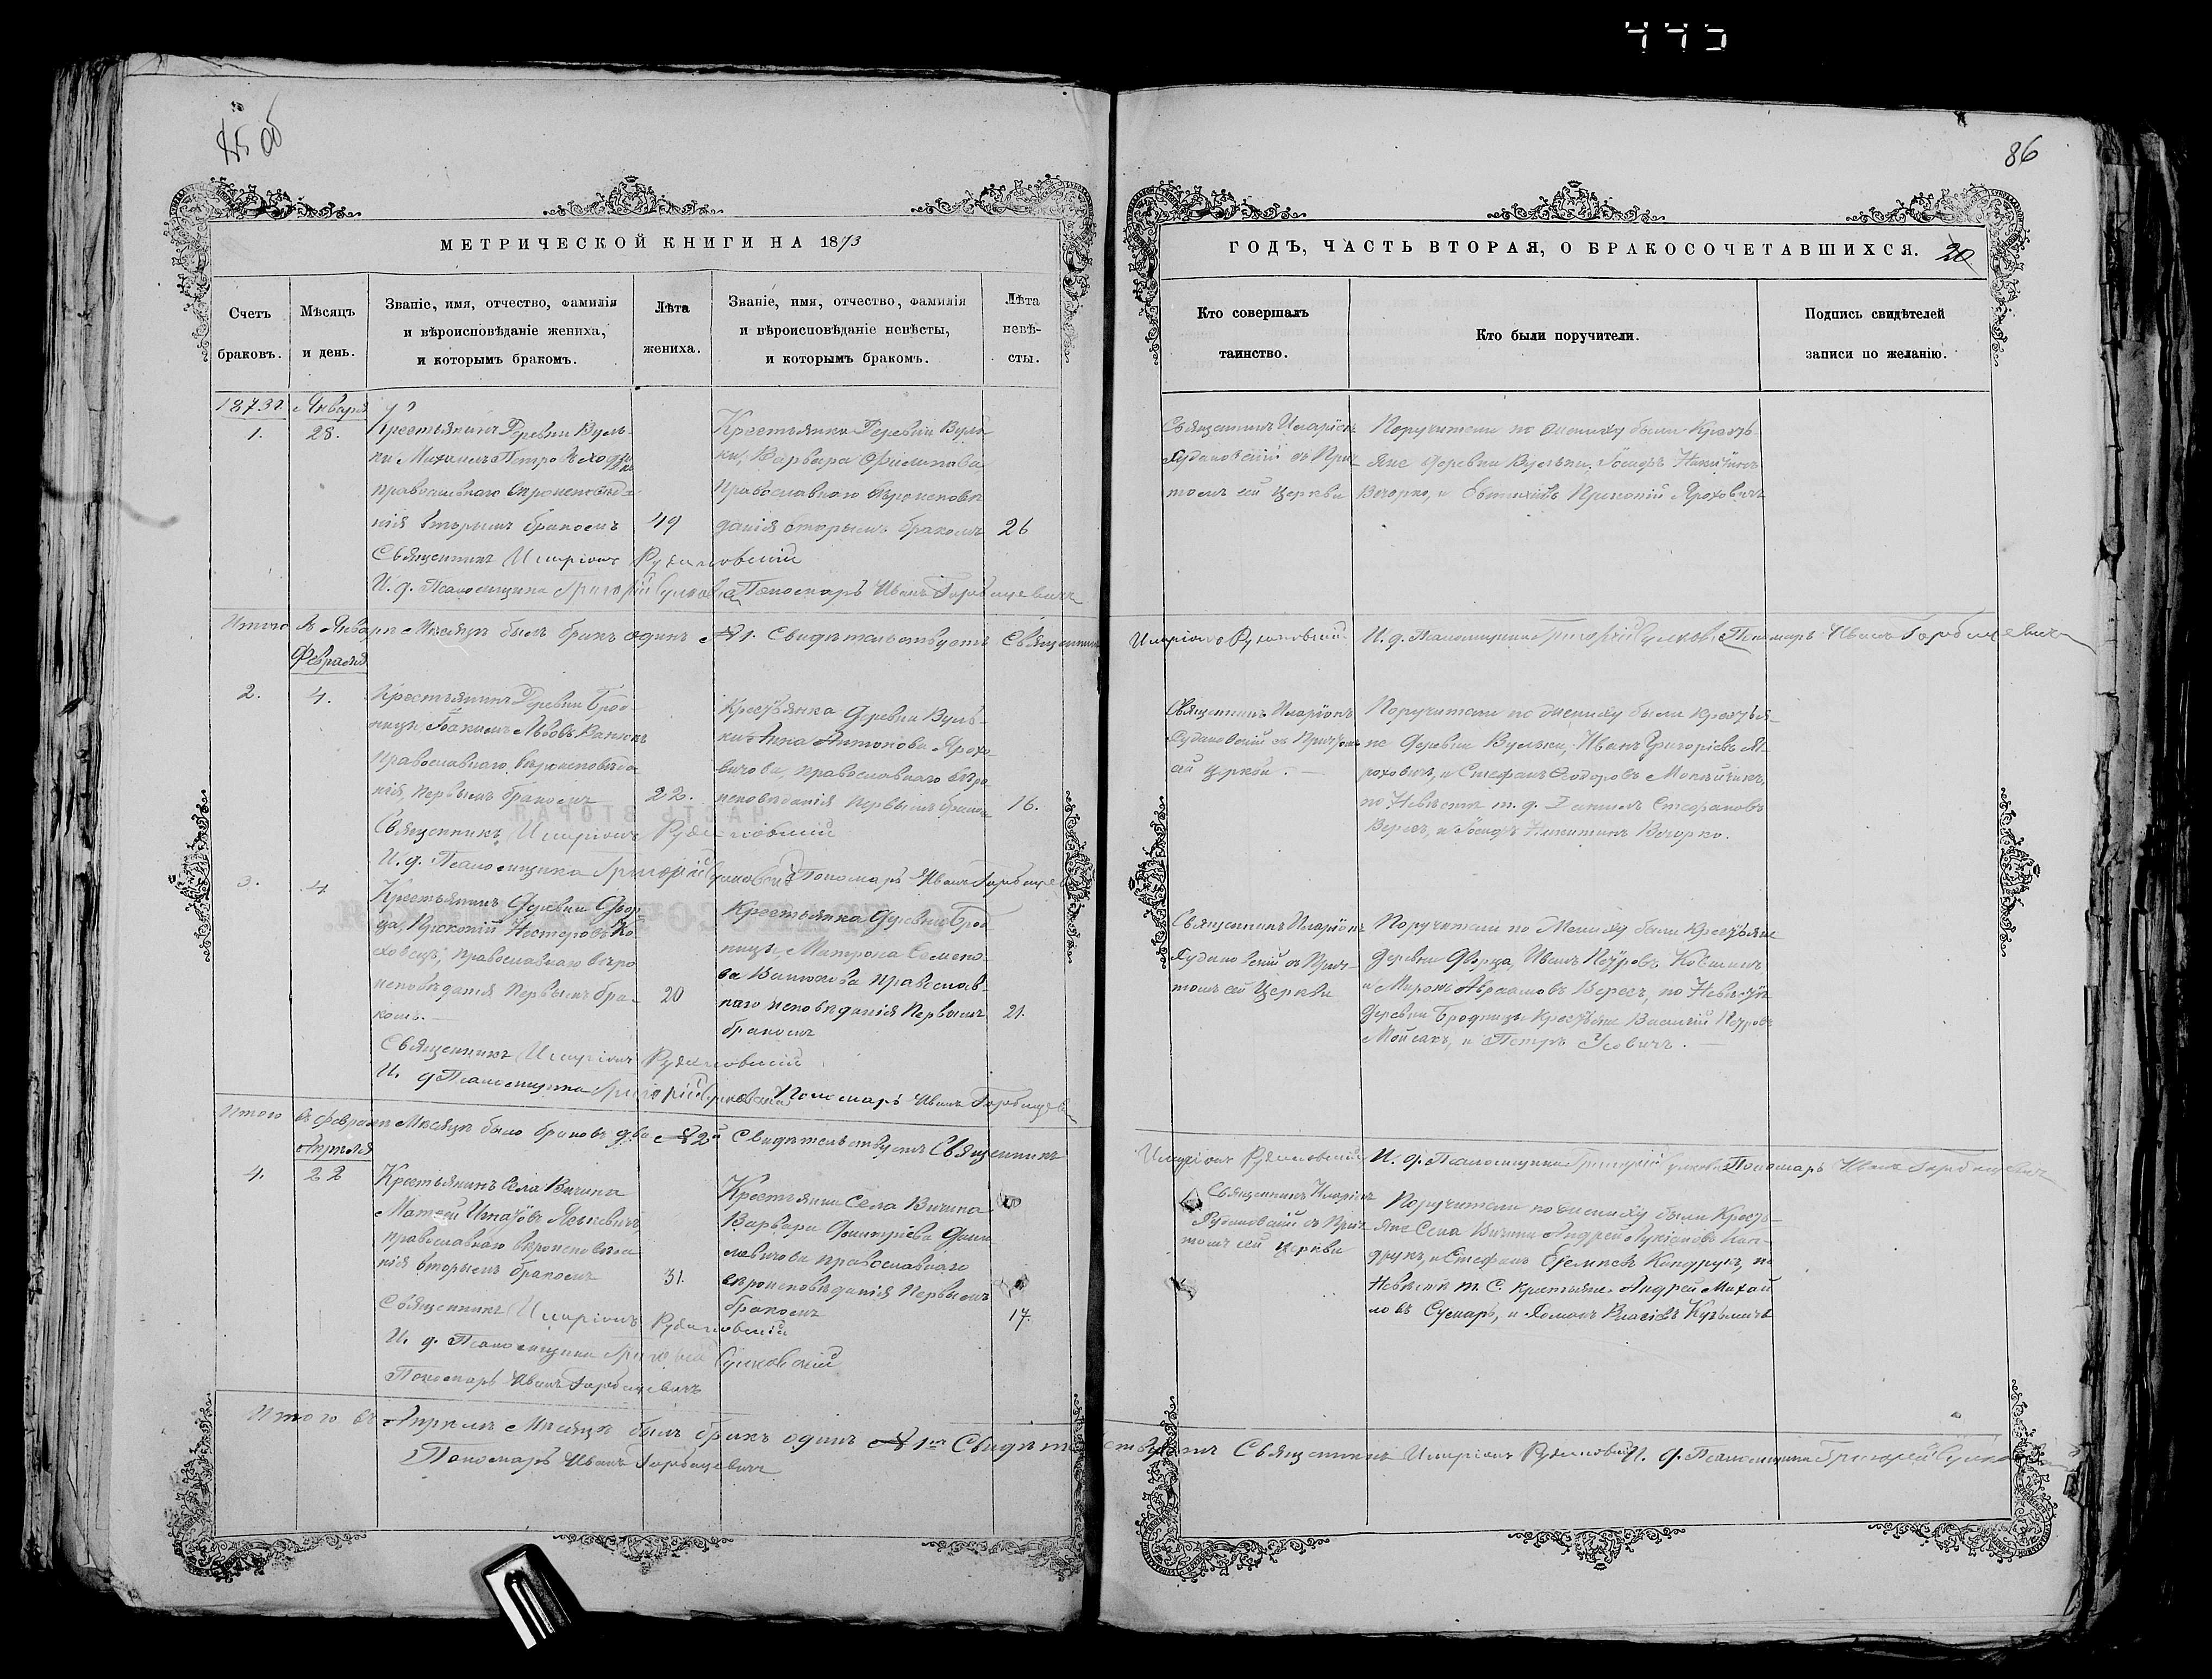 445
85 об
86
МЕТРИЧЕСКОЙ КНИГИ НА 1873
ГОДЪ, ЧАСТЬ ВТОРАЯ, О БРАКОСОЧЕТАВШИХСЯ. 20
Счетъ
браковъ.
Мѣсяцъ
и день.
Званіе, имя, отчество, фамилія
и вѣроисповѣданіе жениха,
и которымъ бракомъ.
Лѣта
жениха.
Званіе, имя, отчество, фамилія
и вѣроисповѣданіе невѣсты,
и которымъ бракомъ.
Лѣта
невѣ-
сты.
Кто совершалъ
таинство.
Кто были поручители.
Подпись свидѣтелей
записи по желанію.
1873 г. Января
1.
28.
Крестьянинъ Деревни Вуль-
ки Михаилъ Петровъ
православнаго вѣроисповѣда-
нія вторымъ бракомъ
49
Крестьянка Деревни Вуль-
ки, Варвара Филипова
православнаго вѣроисповѣ
данія вторымъ бракомъ
26
Священникъ Иларіонъ
Рудаковскій съ Прич-
томъ сей Церкви
Поручители по жениху были Кресть
яне Деревни Вульки, Іосифъ Никитинъ
Вечорко, и Евтихій Прокопій Яроховичъ
Священникъ Иларіонъ Рудаковскій
И. д. Псаломщика Григорій Пономарь Иванъ Горбацевичъ
Итого въ Январѣ Мѣсяцѣ былъ бракъ одинъ № 1. Свидѣтельствуетъ Священникъ Иларіонъ Рудаковскій И. д. Псаломщика Григорій Пономарь Иванъ Горбацевичъ
Февраля
2.
4.
Крестьянинъ Деревни Брод-
ницъ Іоакимъ Львовъ Ванюкъ
Православнаго вѣроисповѣда
нія, первымъ бракомъ
22.
Крестьянка Деревни Вуль-
ки Анна Антонова Ярохо
вичова, православнаго вѣро
исповѣданія первымъ бракомъ
16.
Священникъ Иларіонъ
Рудаковскій съ Причтомъ
сей Церкви.
Поручители по жениху были крестья-
не Деревни Вульки, Иванъ Григоріевъ Я-
роховичъ, и Стефанъ Ѳеодоровъ
по Невѣстѣ т. д. Даніилъ Стефановъ
Вересъ, и Іосифъ Никитинъ Вечорко.
Священникъ Иларіонъ Рудаковскій
И. д. Псаломщика Григорій Пономарь Иванъ
3.
4
Крестьянинъ Деревни Двор-
ца, Прокопій Нестеровъ Ко
ховецъ, православнаго вѣро
исповѣданія первымъ бра-
комъ.
20
Крестьянка Деревни Брод
ницъ, Матрона Семено-
ва Ванюкова православ-
наго исповѣданія первымъ
бракомъ
21.
Священникъ Иларіонъ
Рудаковскій съ Прич-
томъ сей Церкви
Поручители по Жениху были Крестьяне
Деревни Дворца, Иванъ Петровъ
и Миронъ Авраамовъ Вересъ, по Невѣстѣ
Деревни Бродницъ Крестьяне Василій Петровъ
Мойсакъ, и Петръ Усовичъ.
Священникъ Иларіонъ Рудаковскій
И. д Псаломщика Григорій Пономарь Иванъ
Итого въ Февралѣ Мѣсяцѣ было браковъ два № 2й Свидѣтельствуетъ Священникъ Иларіонъ Рудаковскій И. д. Псаломщика Григорій Пономарь Иванъ Горбацевичъ
Апрѣля
4.
22
Крестьянинъ Села Вичина
Матѳей Игнатовъ Яскевичъ,
православнаго вѣроисповѣда
нія вторымъ бракомъ
31.
Крестьянка Села Вичина
Варвара Дмитріева Дани
левичова православнаго
вѣроисповѣданія первымъ
бракомъ
17.
Священникъ Иларіонъ
Рудаковскій съ Прич
томъ сей Церкви
Поручители по жениху были Кресть-
яне Села Вичина Андрей Лукіановъ Кон-
друкъ, и Стефанъ Ефимовъ Кондрук, по
Невѣстѣ т. С. крестьяне Андрей Михай
ловъ Сумаръ, и Романъ Власовъ Кузьмичъ
Священникъ Иларіонъ Рудаковскій
И. д. Псаломщика Григорій
Пономарь Иванъ Горбацевичъ
Итого въ Апрѣлѣ Мѣсяцѣ былъ бракъ одинъ № 1й Свидѣтельствуетъ Священникъ Иларіонъ Рудаковскій И. д. Псаломщика Григорій
Пономарь Иванъ Горбацевичъ